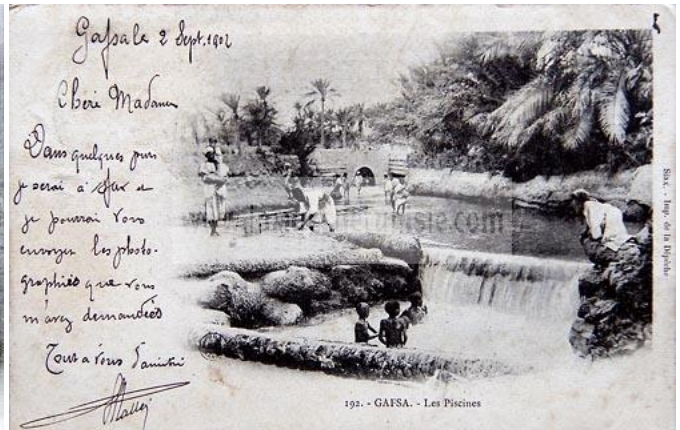 Gafsa le 2 Sept. 1902
Chère Madame
Dans quelques jours
je serai à Sfax et
je pourrai vous
envoyer les photo-
graphies que vous
m'avez demandées
Tout à vous d'amitié
192. - GAFSA. - Les Piscines
Sfax. - Imp. de la Dépêche